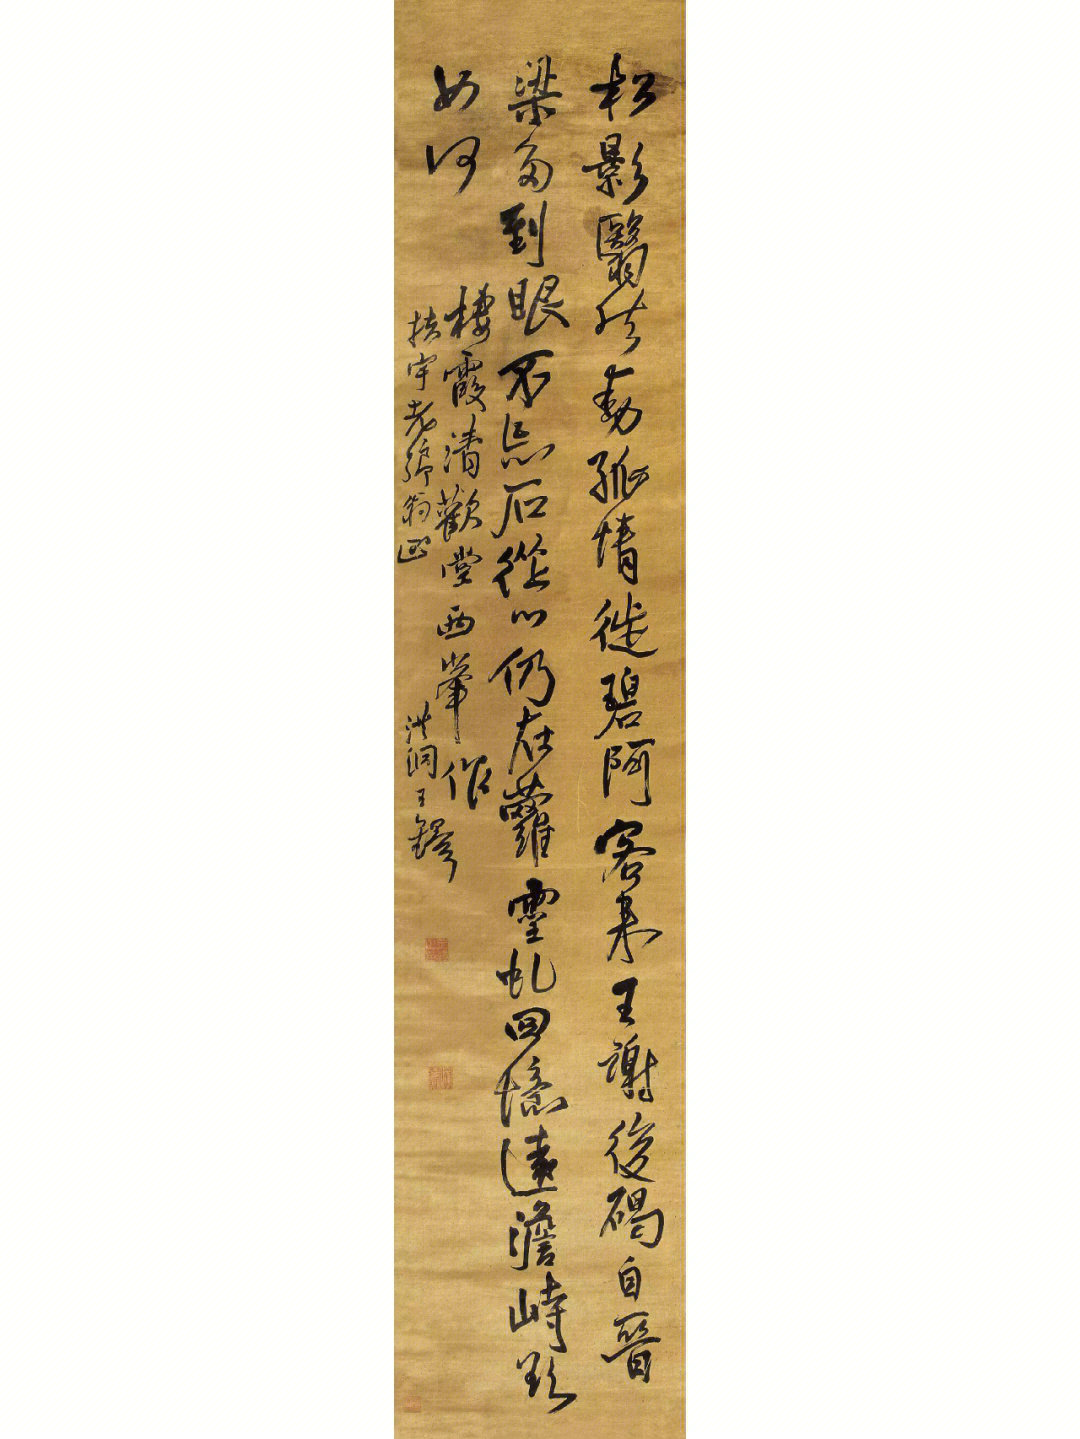 松影翳然動孤情徙碧阿客來王謝後碣自晉
梁多到眼不忘石從心仍在蘿靈虬回憶遠澹峙歟
如何
棲霞清歡堂西峯作
扶宇老鄉翁正
洪洞王鐸